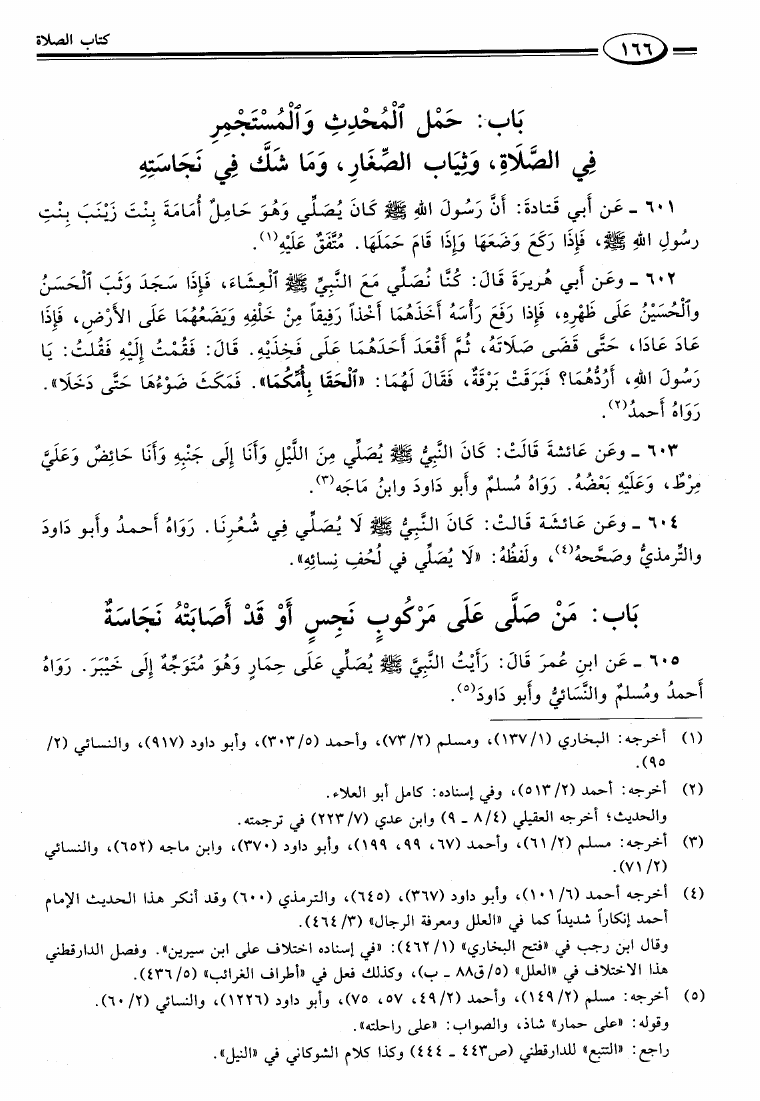 كتاب الصلاة
١٦٦
بَاب: حَمْل ٱلْمُحْدِثِ وَٱلْمُسْتَجْمِرِ
فِي الصَّلَاةِ، وَثِيَاب الصِّغَارِ، وَمَا شَكَّ فِي نَجَاسَتِهِ
٦٠١ ـ عَن أبي قتادةَ: أَنَّ رَسُولَ اللهِ ﷺ كَانَ يُصَلِّي وَهُوَ حَامِلٌ أُمَامَةَ بِنْتَ زَيْنَبَ بِنْتِ
رسُولِ اللهِ ﷺ، فَإِذَا رَكَعَ وَضَعَهَا وَإِذَا قَامَ حَمَلَهَا. مُتَّفَقٌ عَلَيْهِ(١).
٦٠٢ ـ وعَن أبي هُريرَةَ قَالَ: كُنَّا نُصَلِّي مَعَ النَّبِيِّ ﷺ ٱلْعِشَاءَ، فَإِذَا سَجَدَ وَثَبَ ٱلْحَسَنُ
وٱلْحُسَيْنُ عَلَى ظَهْرِهِ، فَإِذَا رَفَعَ رَأْسَهُ أَخَذَهُمَا أَخْذاً رَفِيقاً مِنْ خَلْفِهِ وَيَضَعُهُمَا عَلَى الأَرْضِ، فَإِذَا
عَادَ عَادَا، حَتَّى قَضَى صَلَاتَهُ، ثُمَّ أَقْعَدَ أَحَدَهُمَا عَلَى فَخِذَيْهِ. قَالَ: فَقُمْتُ إِلَيْهِ فَقُلتُ: يَا
رَسُولَ اللهِ، أَرُدُّهُمَا؟ فَبَرَقَتْ بَرْقَةٌ، فَقَالَ لَهُمَا: «ٱلْحَقَا بِأُمِّكُمَا». فَمَكَثَ ضَوْءُهَا حَتَّى دَخَلَا».
رَوَاهُ أحمدُ(٢).
٦٠٣ ـ وعَن عَائشةَ قَالَتْ: كَانَ النَّبِيُّ ﷺ يُصَلِّي مِنَ اللَّيْلِ وَأَنَا إِلَى جَنْبِهِ وَأَنَا حَائِضٌ وَعَلَيَّ
مِرْطٌ، وَعَلَيْهِ بَعْضُهُ. رَوَاهُ مُسلمٌ وأبو دَاودَ وابنُ مَاجَه(٣).
٦٠٤ ـ وعَن عَائشَة قَالتْ: كَانَ النَّبِيُّ ﷺ لَا يُصَلِّي فِي شُعُرِنَا. رَوَاهُ أحمدُ وأبو دَاودَ
والتِّرمذيُّ وصَحَّحهُ(٤)، ولَفظُهُ: «لَا يُصَلِّي في لُحُفِ نِسائِهِ».
بَاب: مَنْ صَلَّى عَلَى مَرْكُوبٍ نَجِسٍ أَوْ قَدْ أَصَابَتْهُ نَجَاسَةٌ
٦٠٥ ـ عَن ابنِ عُمرَ قَالَ: رَأَيْتُ النَّبِيَّ ﷺ يُصَلِّي عَلَى حِمَارٍ وَهُوَ مُتَوَجِّهٌ إِلَى خَيْبَرَ. رَوَاهُ
أحمدُ ومُسلمٌ والنَّسائيُّ وأبو دَاودَ(٥).
(١) أخرجه: البخاري (١٣٧/١)، ومسلم (٧٣/٢)، وأحمد (٣٠٣/٥)، وأبو داود (٩١٧)، والنسائي (٢/
٩٥).
(٢) أخرجه: أحمد (٥١٣/٢)، وفي إسناده: كامل أبو العلاء.
والحديث؛ أخرجه العقيلي (٨/٤ ـ ٩) وابن عدي (٢٢٣/٧) في ترجمته.
(٣) أخرجه: مسلم (٦١/٢)، وأحمد (٦٧، ٩٩، ١٩٩)، وأبو داود (٣٧٠)، وابن ماجه (٦٥٢)، والنسائي
(٧١/٢).
(٤) أخرجه أحمد (١٠١/٦)، وأبو داود (٣٦٧)، (٦٤٥)، والترمذي (٦٠٠) وقد أنكر هذا الحديث الإمام
أحمد إنكاراً شديداً كما في «العلل ومعرفة الرجال» (٤٦٤/٣).
وقال ابن رجب في «فتح البخاري» (٤٦٢/١): «في إسناده اختلاف على ابن سيرين». وفصل الدارقطني
هذا الاختلاف في «العلل» (٥/ق٨٨ ـ ب)، وكذلك فعل في «أطراف الغرائب» (٤٣٦/٥).
(٥) أخرجه: مسلم (١٤٩/٢)، وأحمد (٤٩/٢، ٥٧، ٧٥)، وأبو داود (١٢٢٦)، والنسائي (٦٠/٢).
وقوله: «على حمار» شاذ، والصواب: «على راحلته».
راجع: «التتبع» للدارقطني (ص٤٤٣ ـ ٤٤٤) وكذا كلام الشوكاني في «النيل».